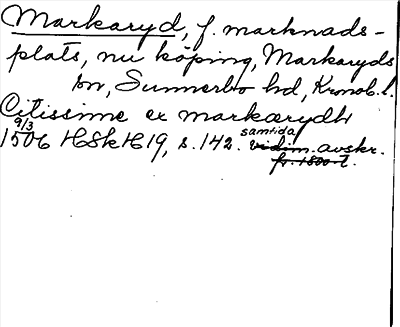 Markaryd, f. marknads-
plats, nu köping, Markaryds
sn, Sunnerbo hd, Kronob. l.
Citissime ex markærydh
9/3
1506 HSkH 19, s. 142. samtida vidim. avskr.
fr. 1500-t.